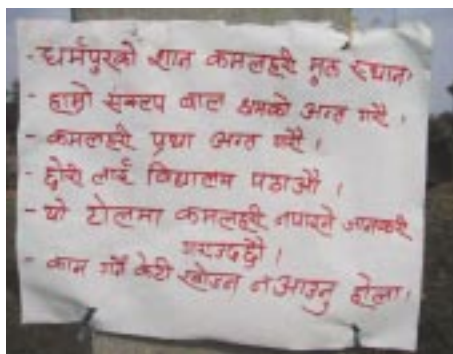 - धर्मपुरको शान कमलहरी मुक्त स्थान
- हाम्रो संकल्प बाल श्रमको अन्त गरौ ।
- कमलहरी प्रथा अन्त गरौ ।
- छोरी लाई विद्यालय पठाऔ ।
- यो टोलमा कमलहरी नपाइने जानकारी
गराउदछौ ।
- काम गर्ने केटी खोज्न नआउनु होला ।